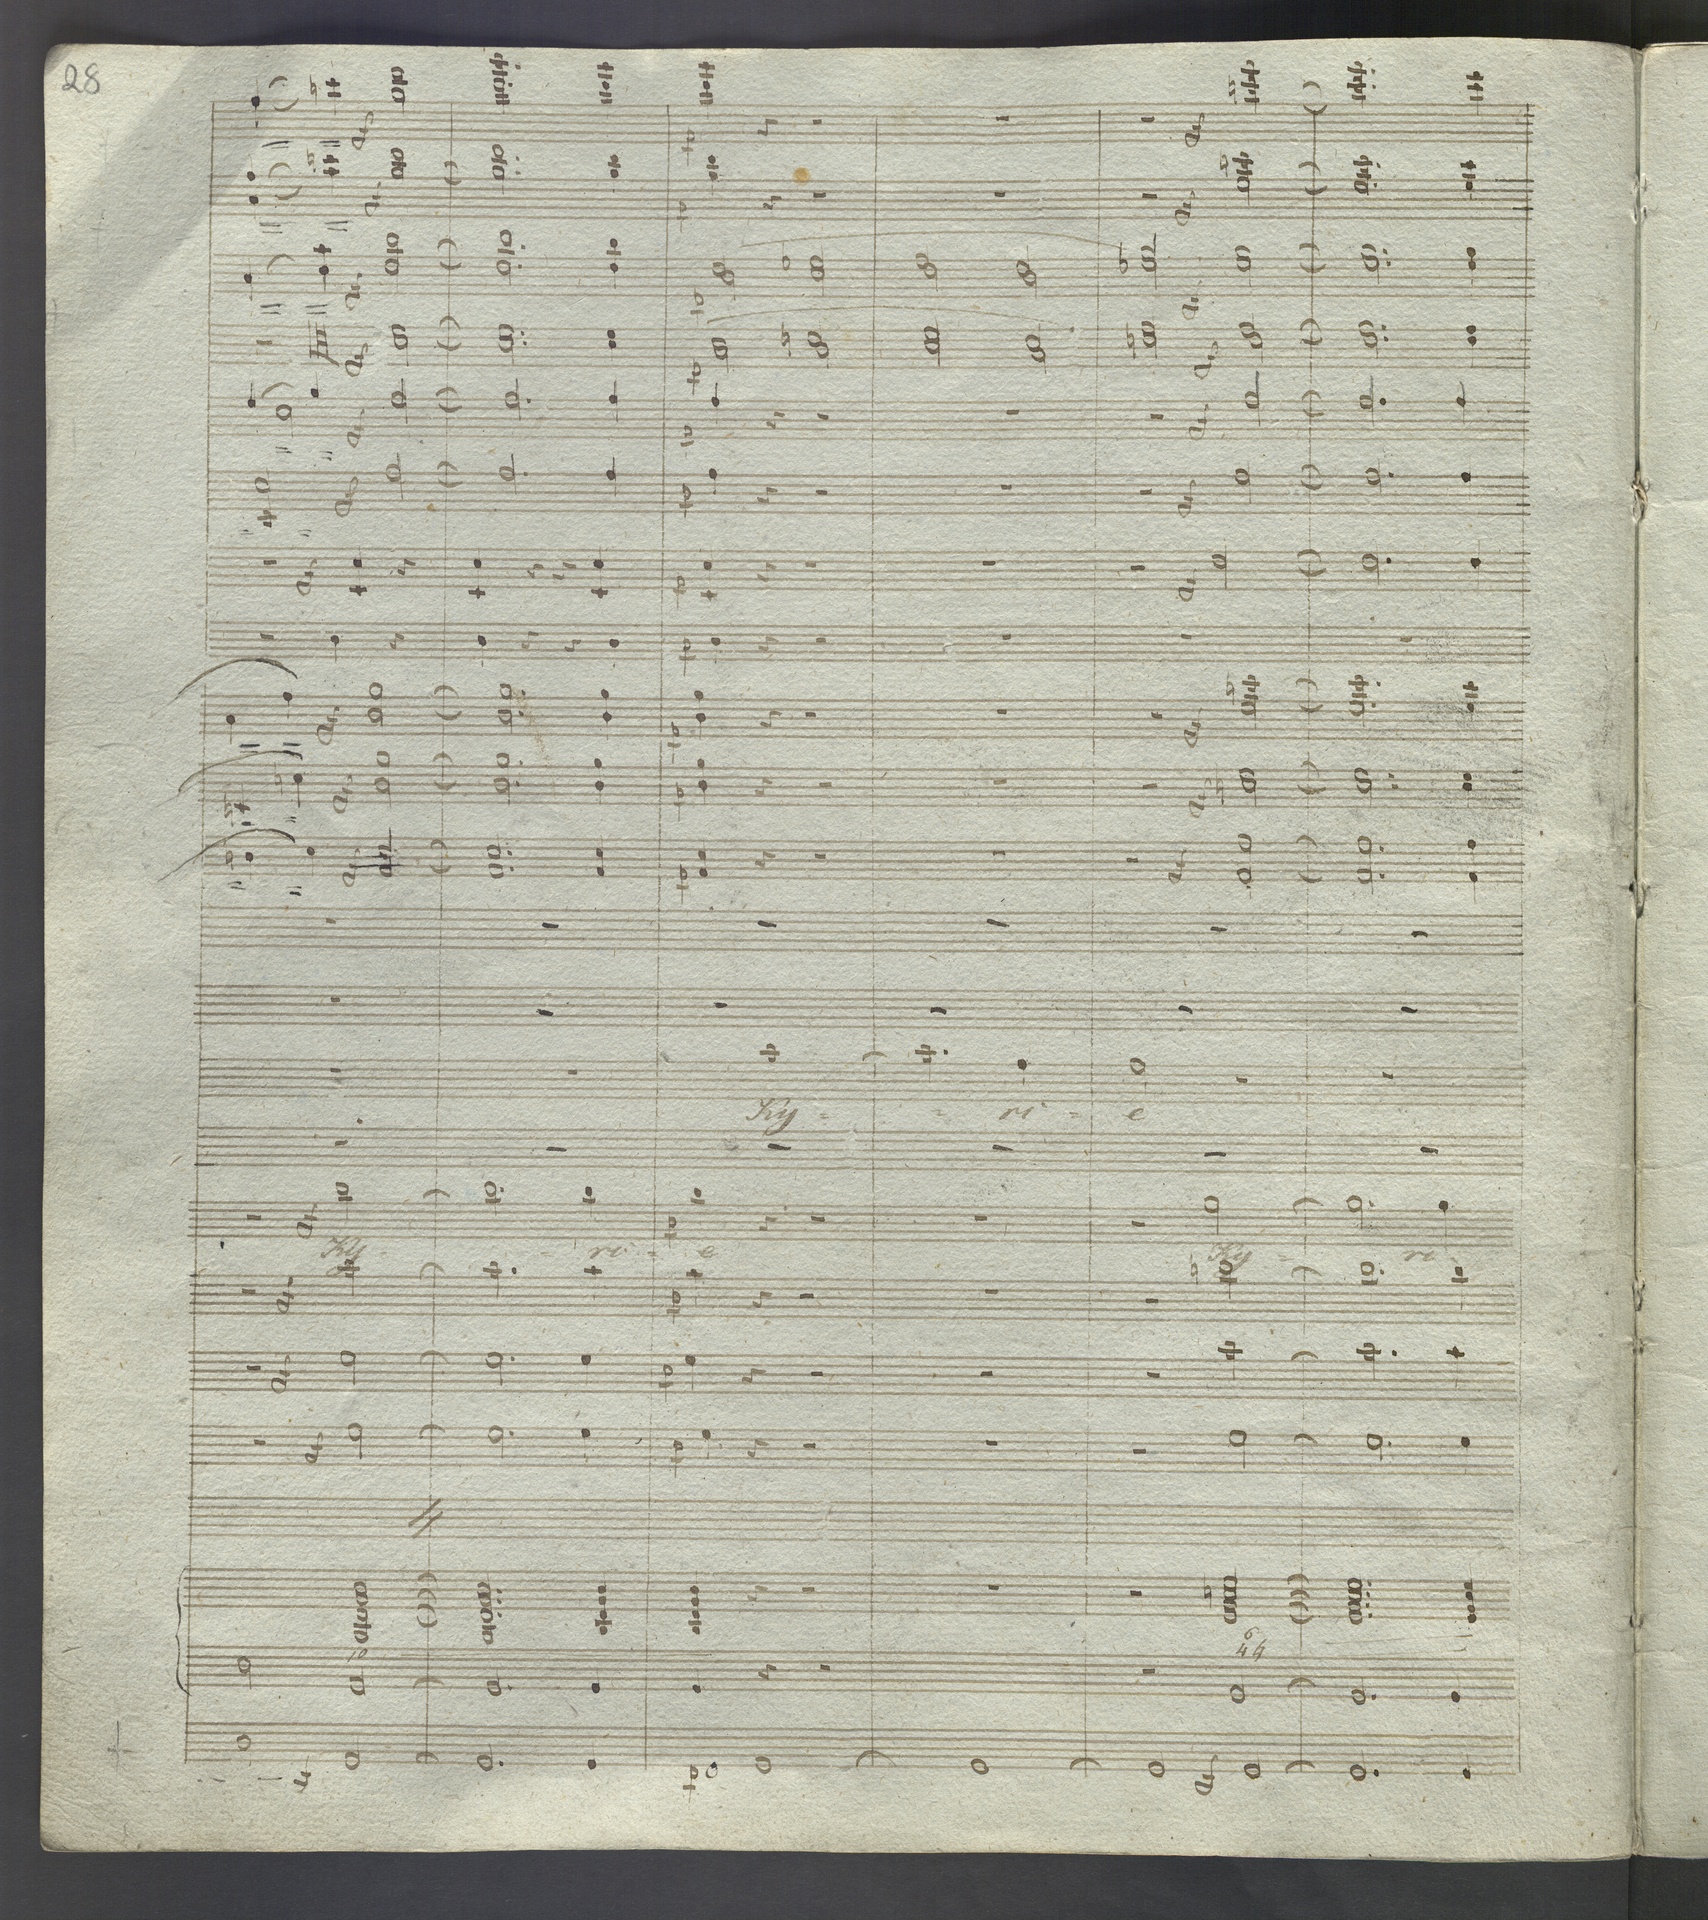 28
Ky - - ri - e
Ky - - ri - e Ky - ri -
6
4 4